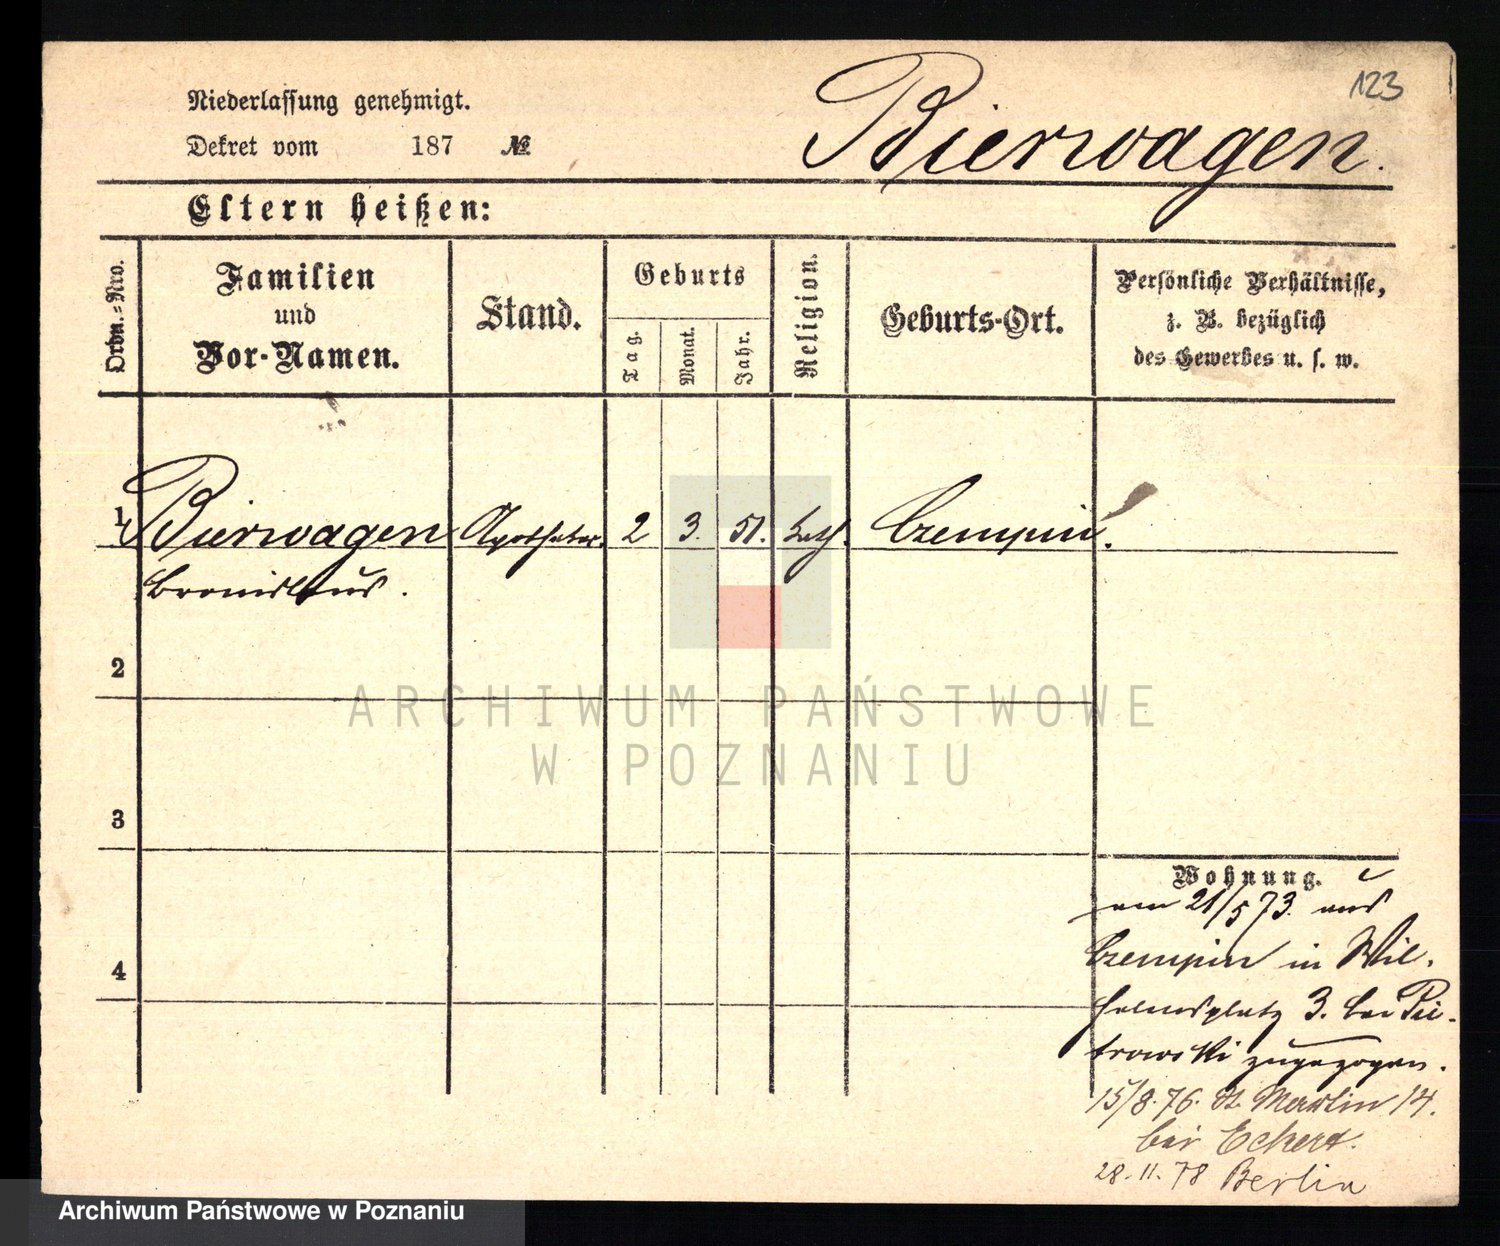 123
Niederlassung genehmigt.
Dekret vom 187 №
Bierwagen.
Eltern heißen:
Ordn.-Nro.
Familien
und
Vor-Namen.
Stand.
Geburts
Tag.
Monat.
Jahr.
Religion.
Geburts-Ort.
Persönliche Verhältnisse,
z. B. bezüglich
des Gewerbes u. s. w.
1 Bierwagen Apotheker. 2 3. 51. kath. Czempin.
Bronislaus.
2
ARCHIWUM PAŃSTWOWE
W POZNANIU
3
4
Wohnung.
am 21/5 73. aus
Czempin in Wil-
helmsplatz 3. bei Pie-
trowski zugezogen.
15/8.76. St. Martin 14.
bei Eckert.
28.11.78 Berlin
Archiwum Państwowe w Poznaniu